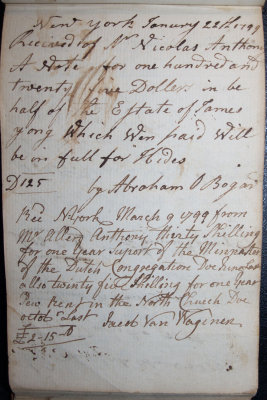 New york January 22th 1799
Received of Mr Nicolas Anthoni
A Note for one hundred and
twenty five Dollers in be
half of the Estate of James
yong Which Wen paid Will
be in full for Hides
D125
by Abraham O Bogar
Recd N york March 9 1799 from
Mr Allerd Anthony thirty Shilling
for one year Suport of the
of the Dutch Congregation Due
also twenty five Shilling for one year
Pew Rent in the North Church Due
octobr Last
£2-15-0
Jacob Van Wagenen